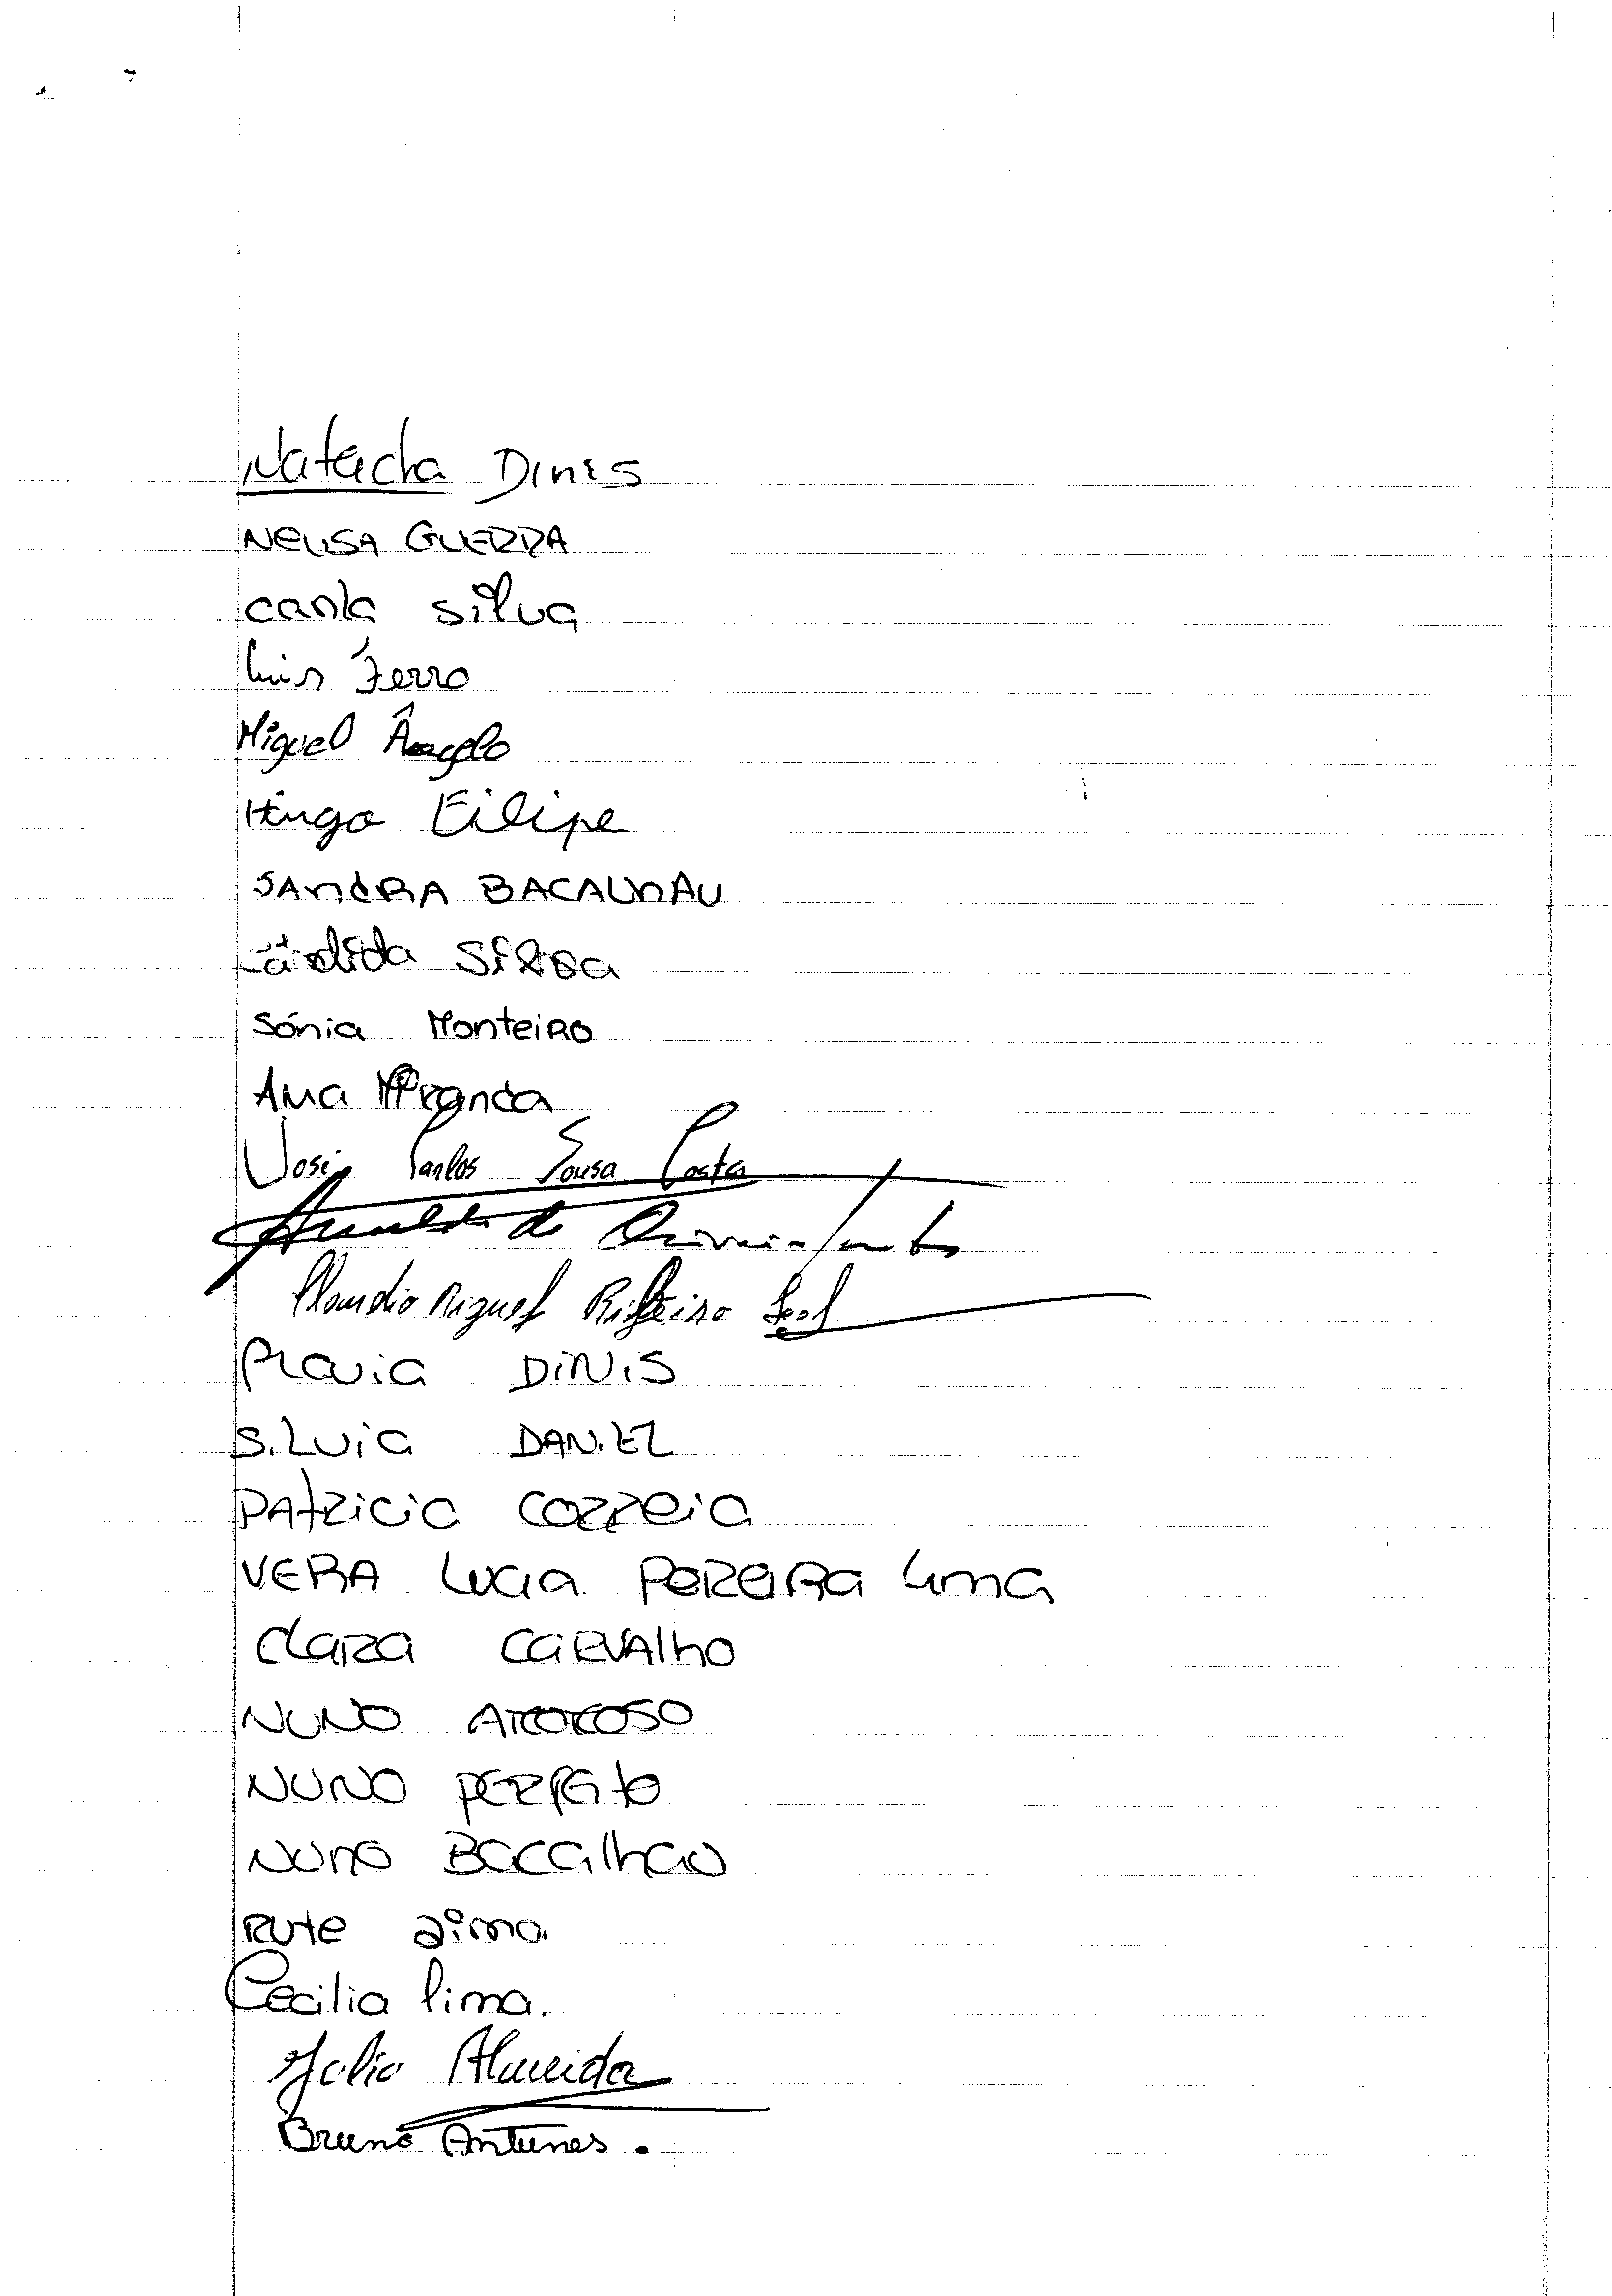 Natacha Dinis
NEUSA GUERRA
Carla Silva
Luis Ferro
Miguel Ângelo
Hugo Filipe
SANdRA BACALhAU
Cândida Silva
Sónia MonteiRo
Ana Miranda
José Carlos Sousa Costa
Arnaldo de Oliveira Santos
Claudio Miguel Ribeiro Leal
Flavia DiNiS
SiLvia DANiEL
PAtRicia CoRReia
VERA Lucia PEREiRA Lima
ClaRa CaRVAlho
NUNO
NUNO PERFEito
NUNO Bacalhau
Rute Lima
Cecilia lima.
Julio Almeida
Bruno Antunes.